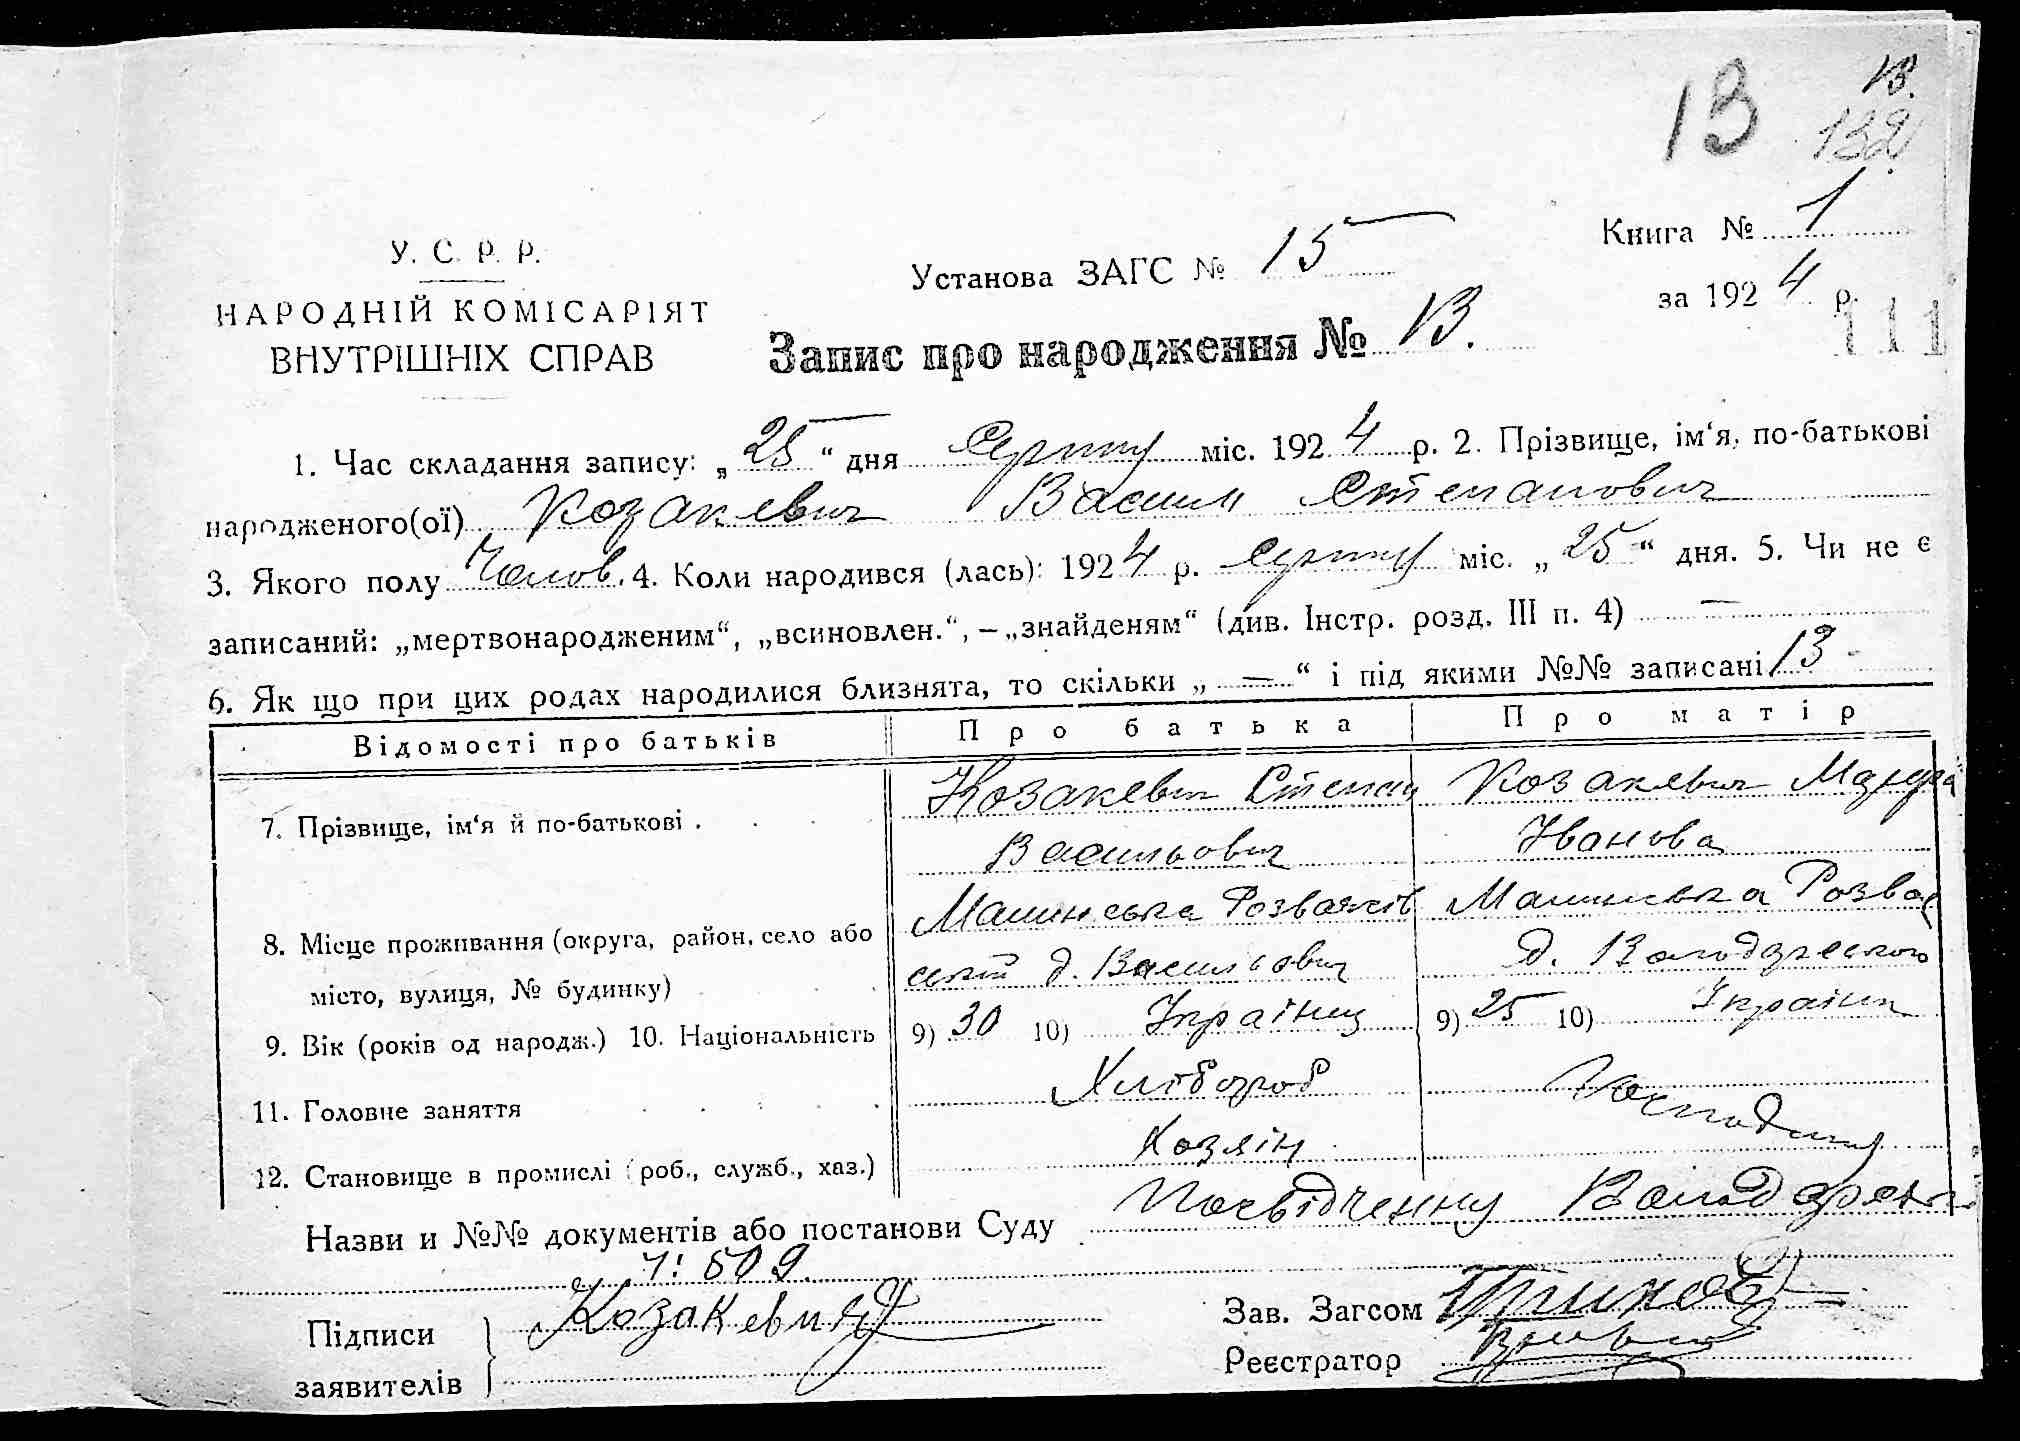 13 13.
132
У. С. Р. Р.
НАРОДНІЙ КОМІСАРІЯТ
ВНУТРІШНІХ СПРАВ
Установа ЗАГС № 15
Книга № 1
за 1924 р.
111
Запис про народження № 13.
1. Час складання запису: „25“ дня Серпня міс. 1924 р. 2. Прізвище, ім‘я, по-батькові
народженого(ої) Козакевич Василь Степанович
3. Якого полу Чолов. 4. Коли народився (лась): 1924 р. Серпня міс. „25“ дня. 5. Чи не є
записаний: „мертвонародженим“, „всиновлен.“, – „знайденям“ (див. Інстр. розд. III п. 4) —
6. Як що при цих родах народилися близнята, то скільки „—“ і під якими №№ записані 13
Відомості про батьків Про батька Про матір
7. Прізвище, ім‘я й по-батькові . Козакевич Степан Козакевич
Васильович Іванова
8. Місце проживання (округа, район, село або Малинська Розважів Малинська Розваж
місто, вулиця, № будинку) ський д. д.
9. Вік (років од народж.) 10. Національність 9) 30 10) Українц 9) 25 10) Українк
11. Головне заняття Хлібороб Господиня
12. Становище в промислі (роб., служб., хаз.) Хозяїн
Назви и №№ документів або постанови Суду Посвідчення
ч: 509
Підписи Козакевич
заявителів
Зав. Загсом
Реєстратор